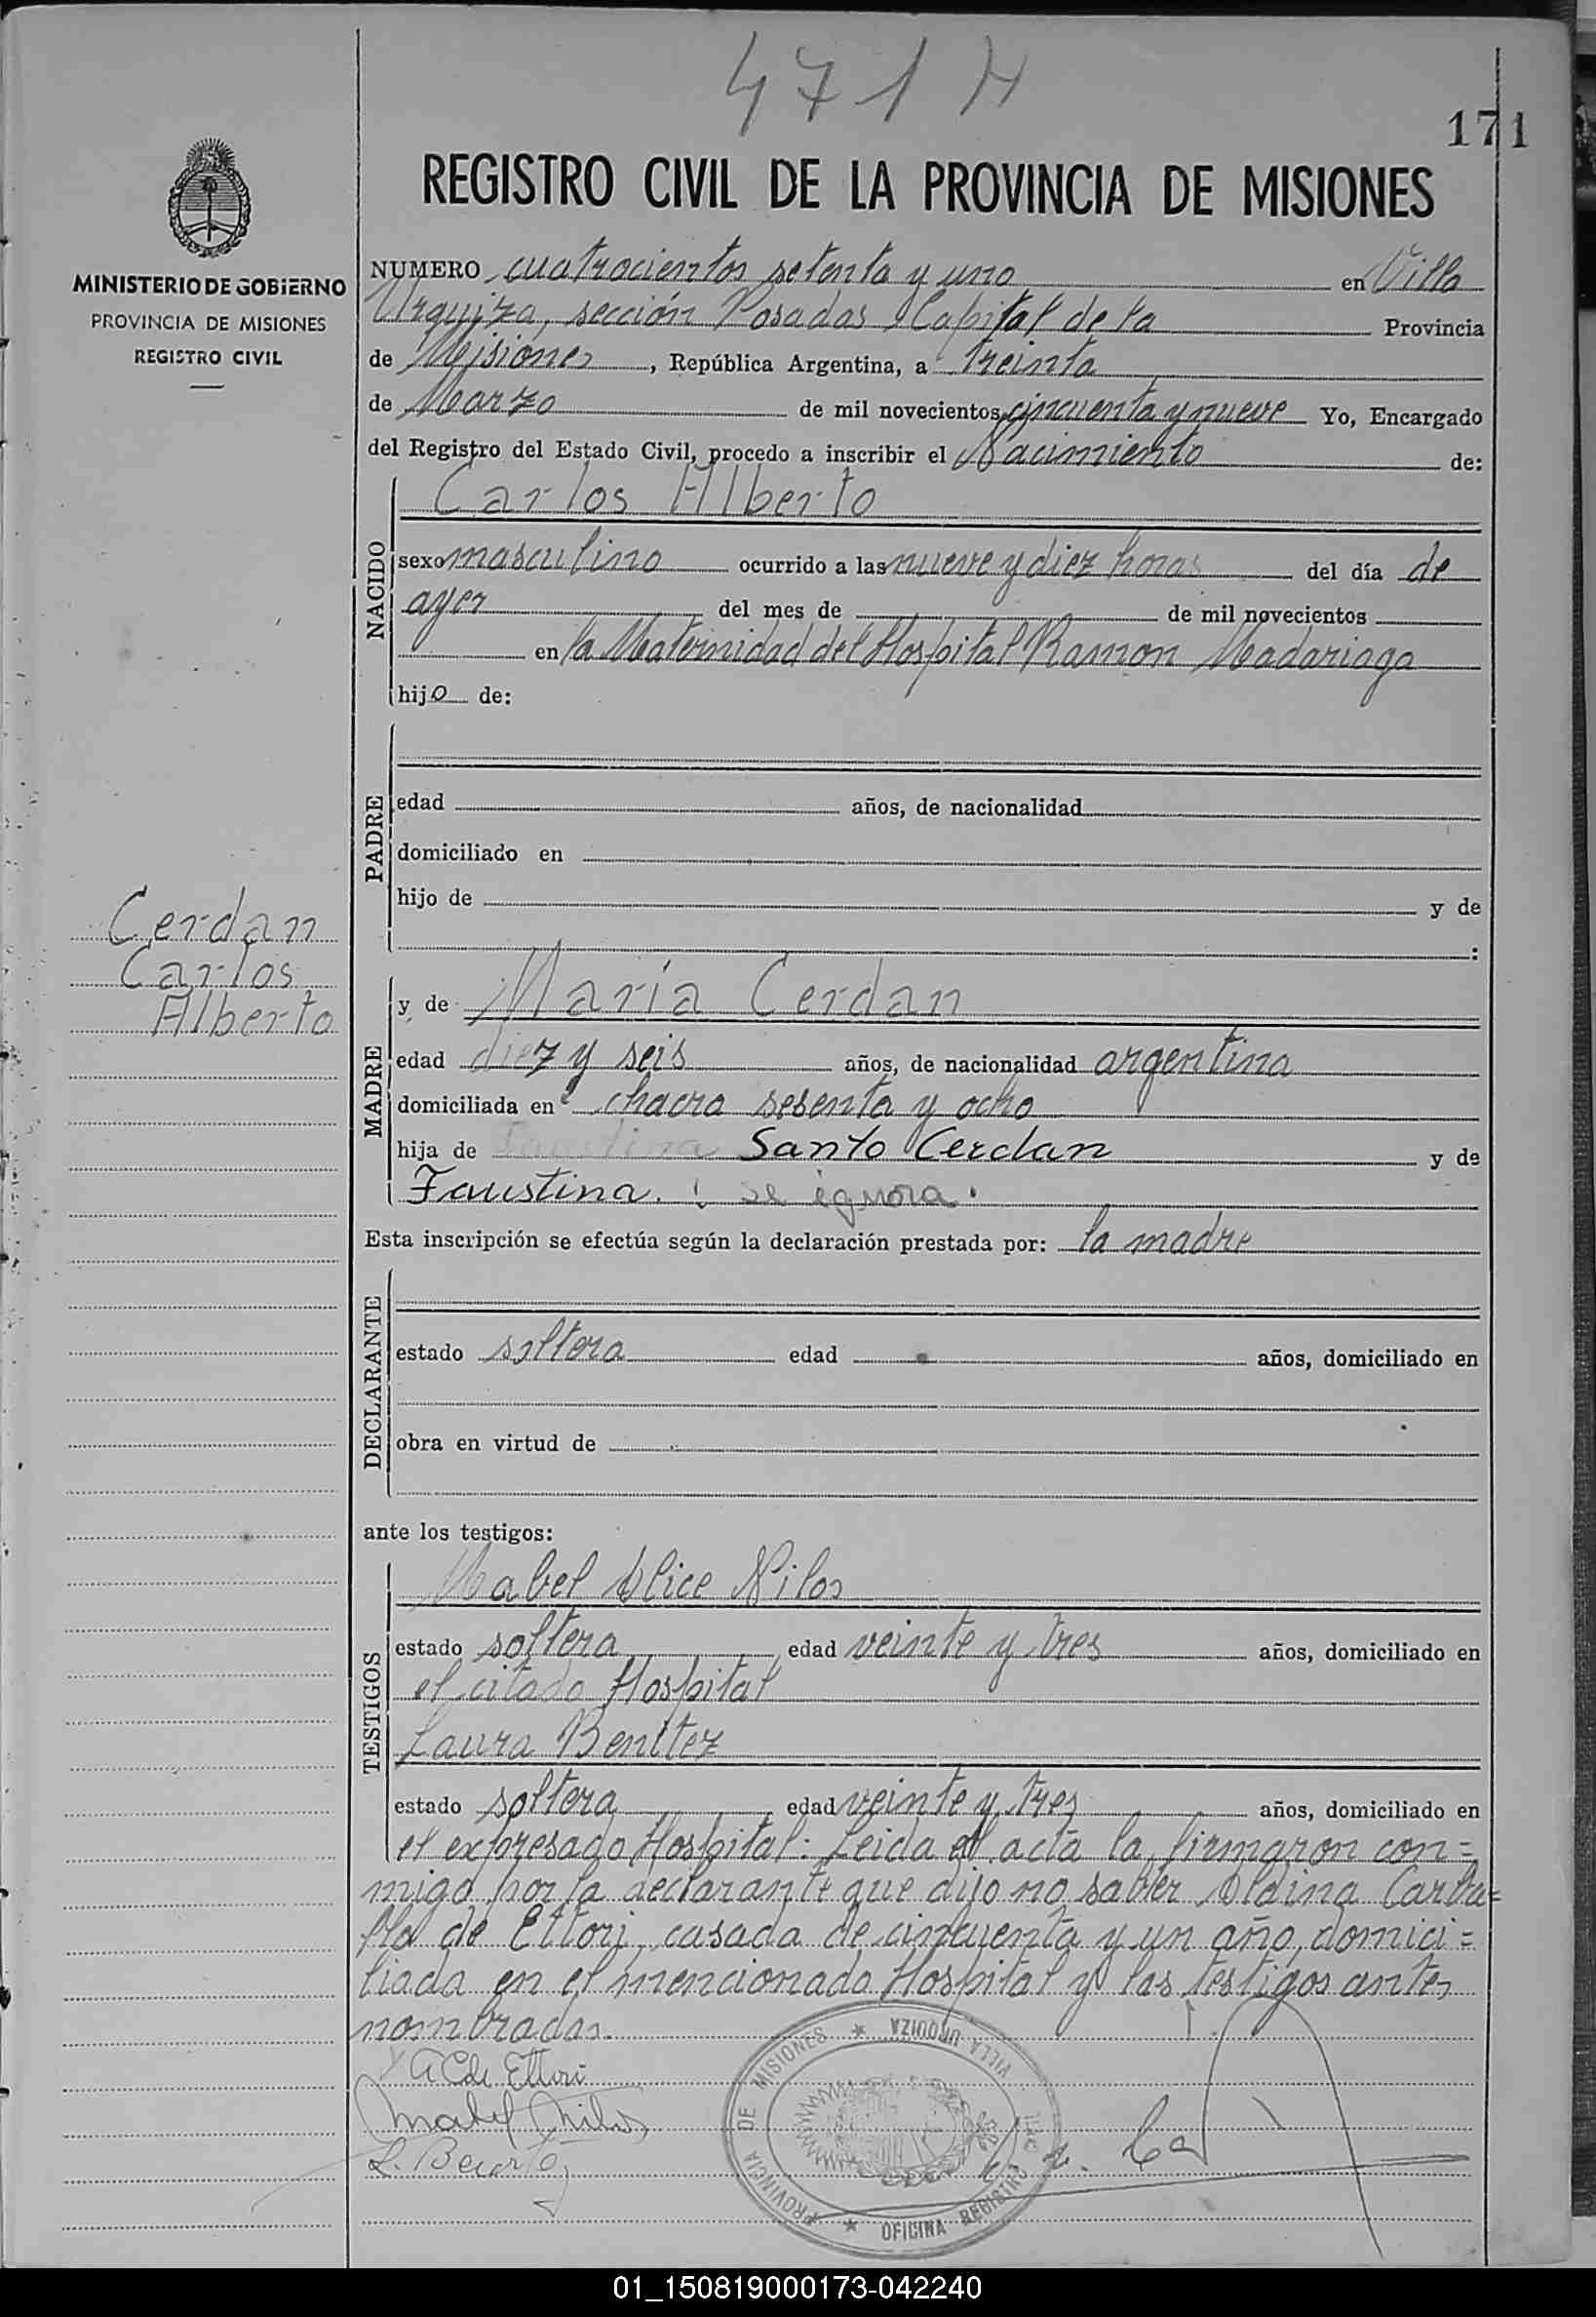 471 H
171
REGISTRO CIVIL DE LA PROVINCIA DE MISIONES
MINISTERIO DE GOBIERNO
PROVINCIA DE MISIONES
REGISTRO CIVIL
NUMERO cuatrocientos setenta y uno en Villa
Urquiza, sección Posadas Capital de la Provincia
de Misiones, República Argentina, a treinta
de Marzo de mil novecientos cincuenta y nueve Yo, Encargado
del Registro del Estado Civil, procedo a inscribir el Nacimiento de:
NACIDO
Carlos Alberto
sexo masculino ocurrido a las nueve y diez horas del día de
ayer del mes de de mil novecientos
en la Maternidad del Hospital Ramon Madariaga
hijo de:
PADRE
edad años, de nacionalidad
domiciliado en
hijo de y de
:
Cerdan
Carlos
Alberto
MADRE
y de María Cerdan
edad diez y seis años, de nacionalidad argentina
domiciliada en chacra sesenta y ocho
hija de Faustina Santo Cerdan y de
Faustina. se ignora.
Esta inscripción se efectúa según la declaración prestada por: la madre
DECLARANTE
estado soltera edad años, domiciliado en
obra en virtud de
ante los testigos:
TESTIGOS
Mabel Alice Nilos
estado soltera edad veinte y tres años, domiciliado en
el citado Hospital
Laura Benitez
estado soltera edad veinte y tres años, domiciliado en
el expresado Hospital: Leida el acta la firmaron con=
migo por la declarante que dijo no saber Aldina Carba=
llo de Ettori, casada de cincuenta y un año, domici=
liada en el mencionado Hospital y las testigos antes
nombradas.
A C de Ettori
Mabel Nilos
L. Benitez
PROVINCIA DE MISIONES * VILLA URQUIZA
* OFICINA REGISTRO
01_150819000173-042240